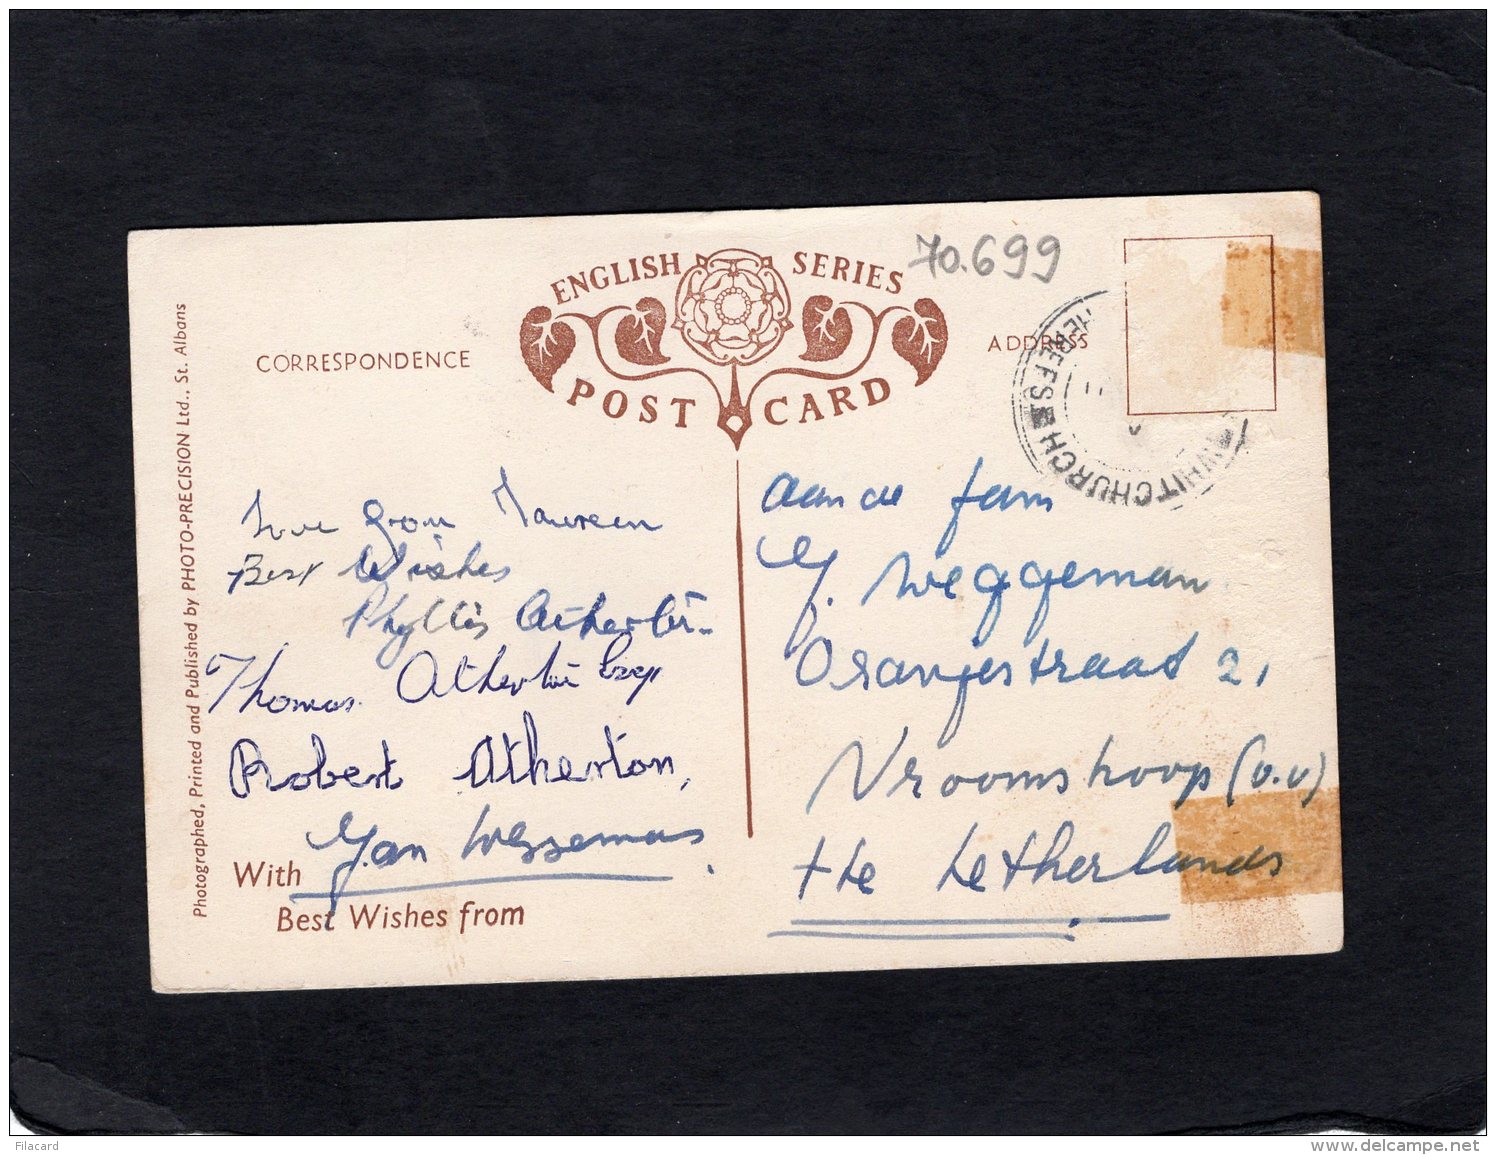 ENGLISH SERIES
POST CARD
70.699
CORRESPONDENCE
ADDRESS
WHITCHURCH HEREFS
Photographed, Printed and Published by PHOTO-PRECISION Ltd., St. Albans
Love from Maureen
Best Wishes
Phyllis Atherton
Thomas Atherton Esq
Robert Atherton,
Jan Weggeman
With
Best Wishes from
Aan de fam
G. Weggeman
Oranjestraat 21
Vroomshoop (O.V)
the Netherlands
Filacard
www.delcampe.net